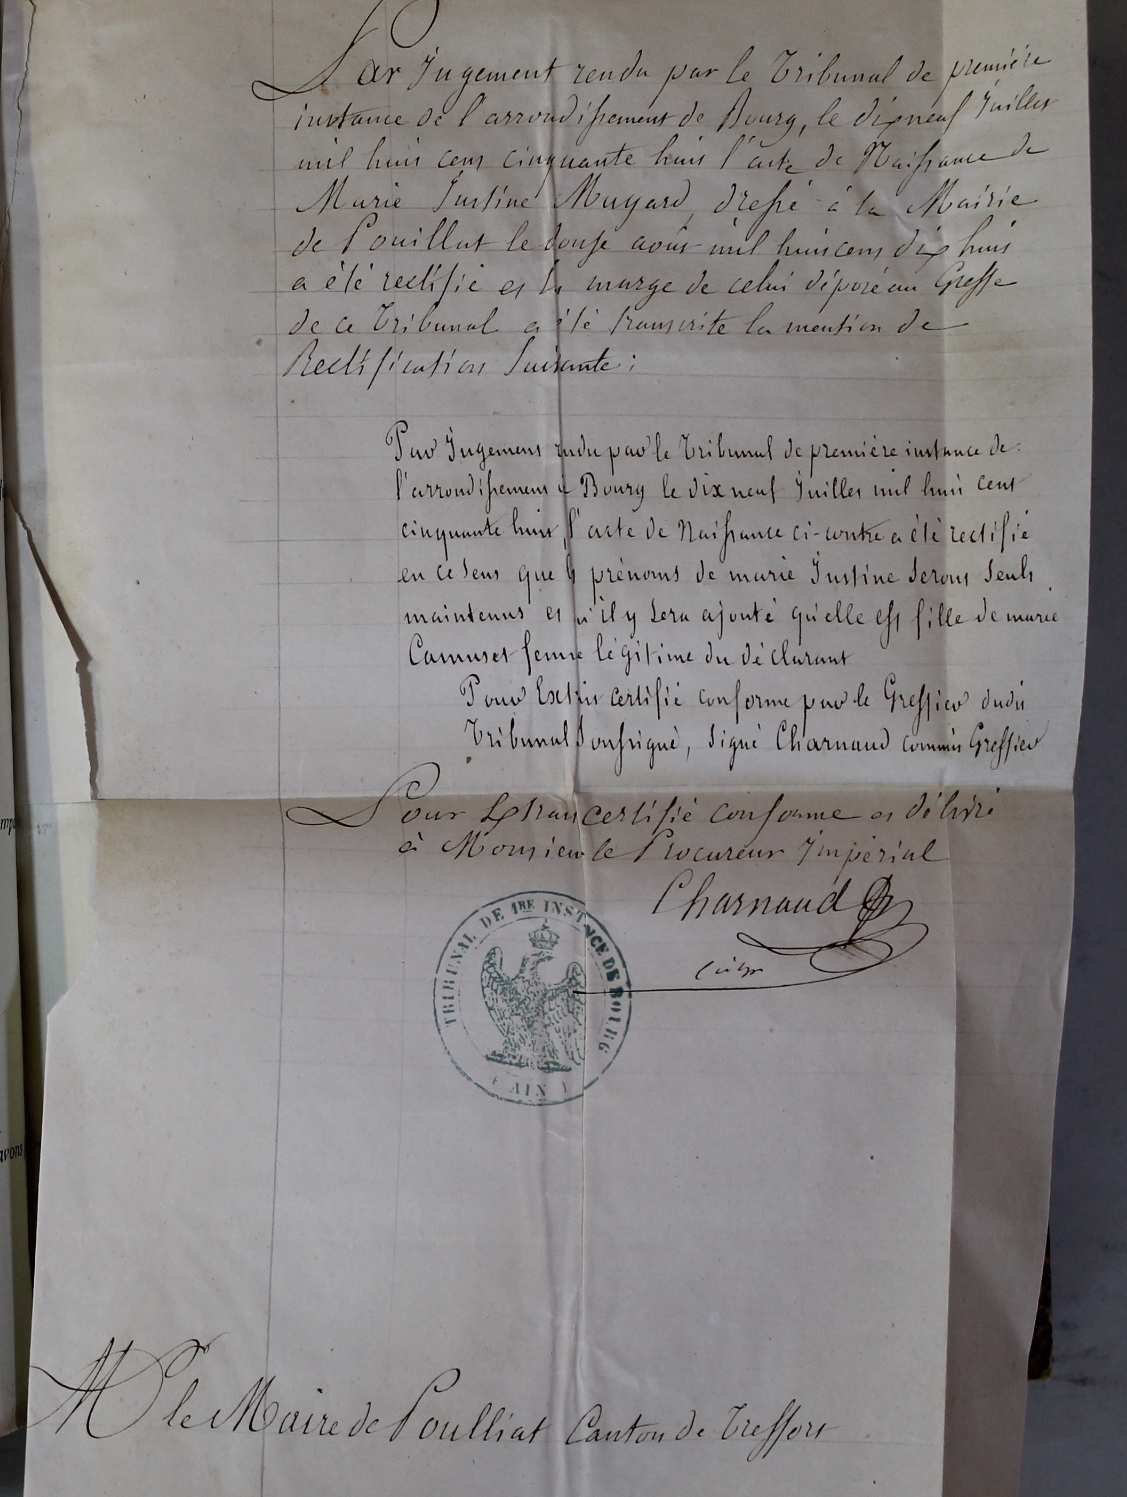 Par Jugement rendu par le Tribunal de première
instance de l'arrondissement de Bourg, le dix neuf Juillet
mil huit cent cinquante huit l'acte de Naissance de
Marie Justine Mugard, dressé à la Mairie
de Pouillat le douze août mil huit cent dix huit
a été rectifié et en marge de celui déposé au Greffe
de ce Tribunal a été transcrite la mention de
Rectification Suivante :
Par Jugement rendu par le Tribunal de première instance de
l'arrondissement de Bourg le dix neuf Juillet mil huit cent
cinquante huit, l'acte de Naissance ci-contre a été rectifié
en ce sens que les prénoms de marie Justine Seront Seuls
maintenus et qu'il y Sera ajouté qu'elle est fille de marie
Camuset femme légitime du déclarant
Pour Extrait certifié conforme par le Greffier dudit
Tribunal Soussigné, Signé Charnaud commis Greffier
Pour Extrait certifié conforme et délivré
à Monsieur le Procureur Impérial
Charnaud
TRIBUNAL DE 1RE INSTANCE DE BOURG
( AIN )
Mr le Maire de Poulliat Canton de Treffort